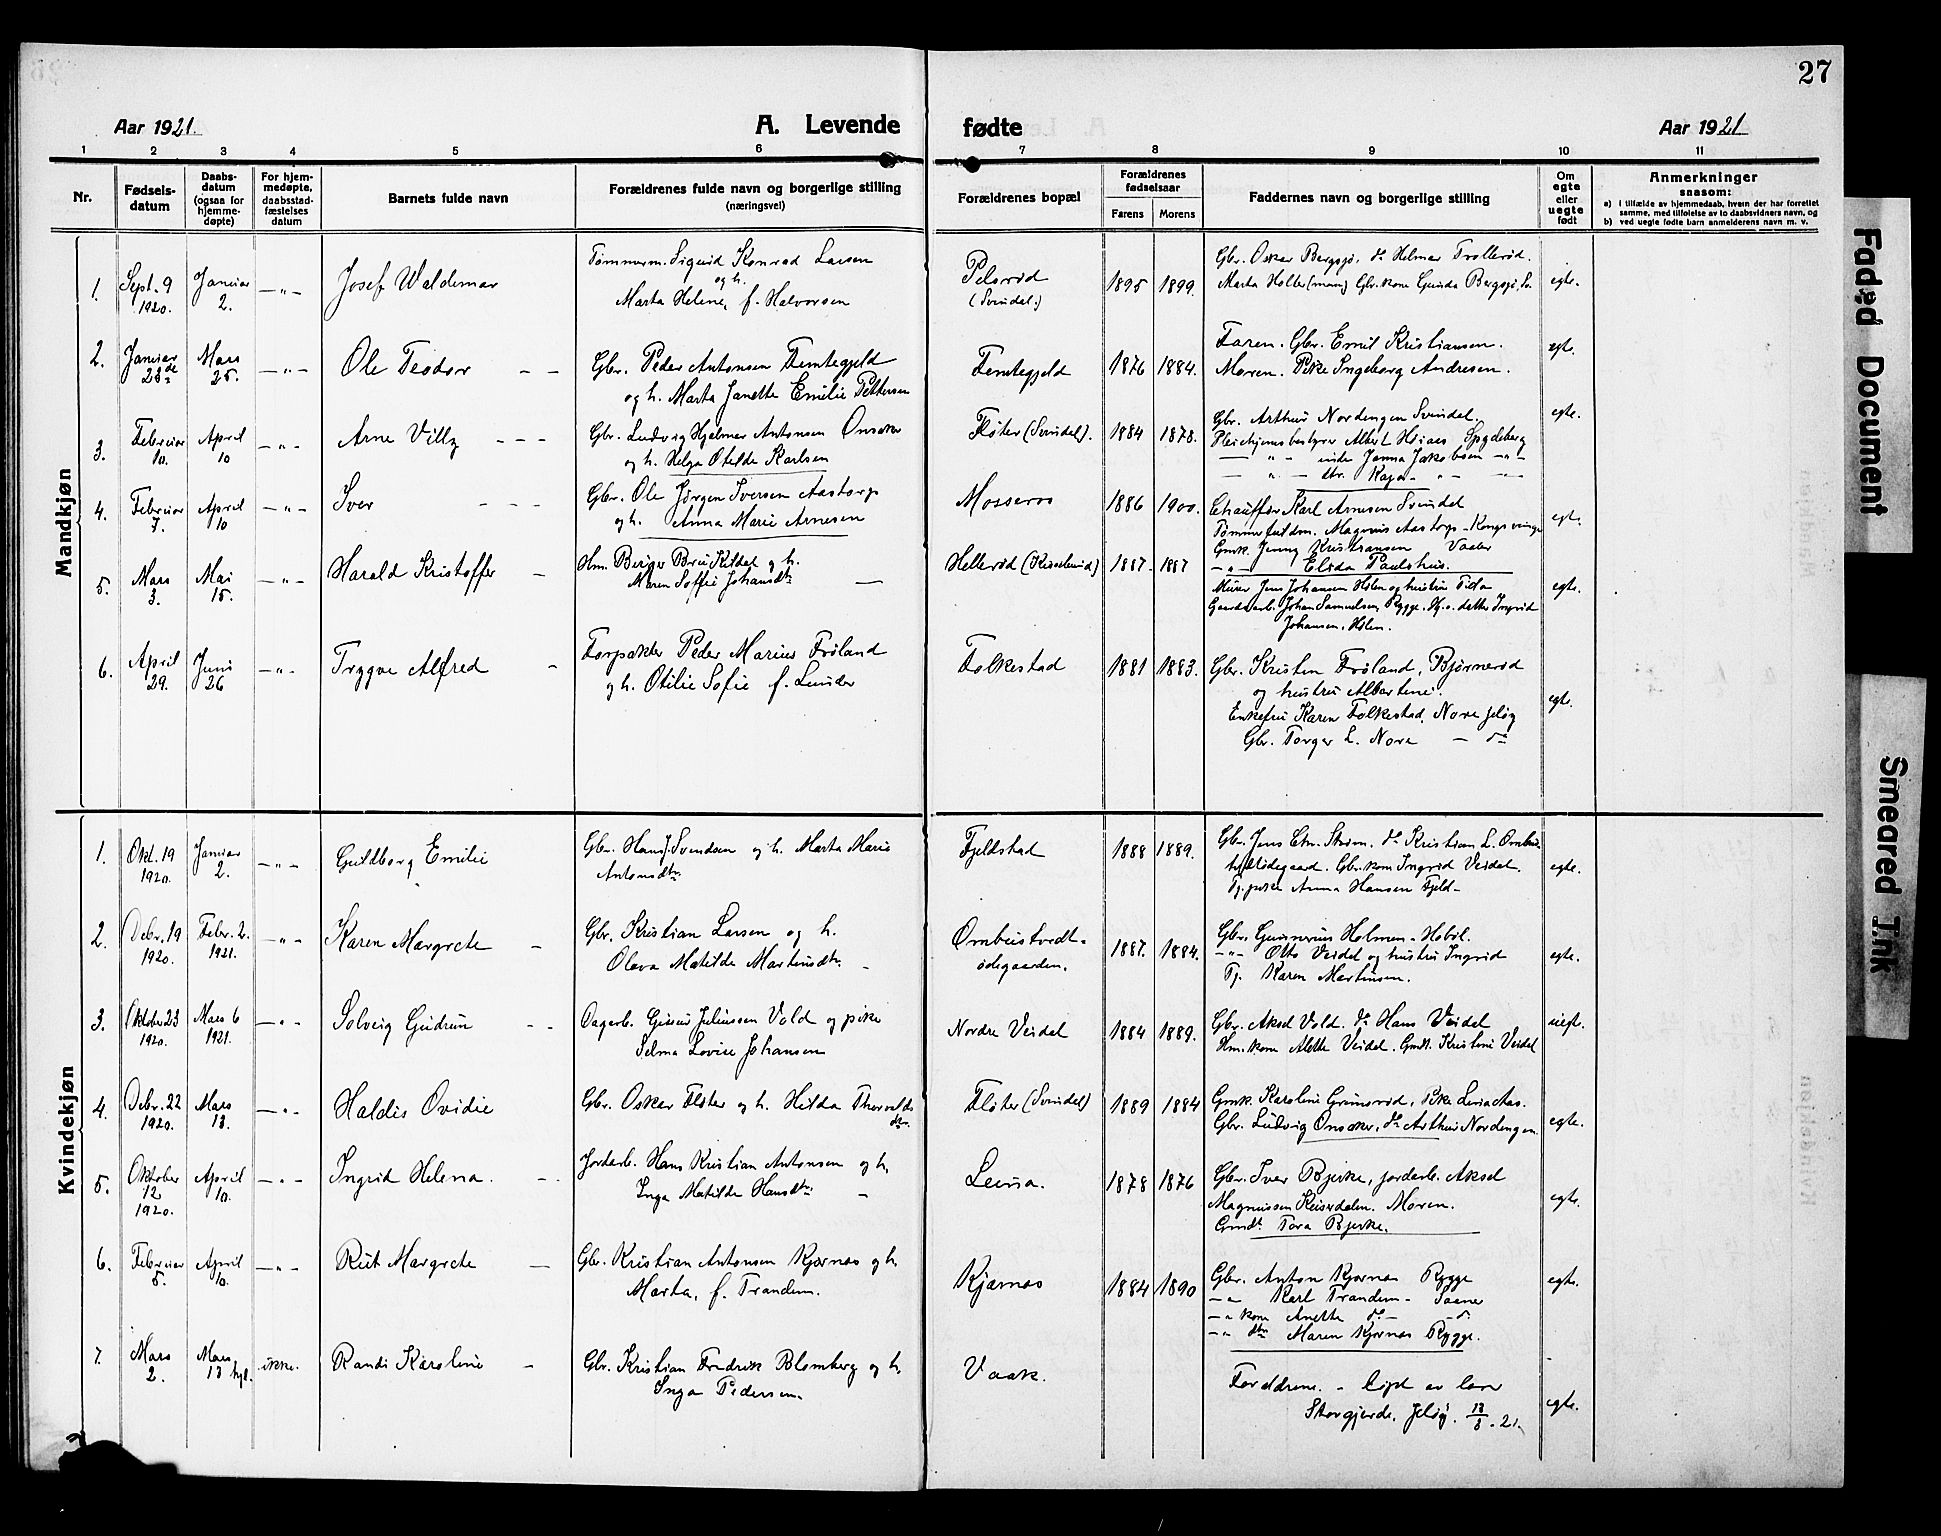 27
Aar 1921.
A. Levende
fødte
Aar 1921
1 2 3 4 5 6 7 8 9 10 11
Nr.
Fødsels-
datum
Daabs-
datum
(ogsaa for
hjemme-
døpte)
For hjem-
medøpte,
daabsstad-
fæstelses
datum
Barnets fulde navn
Forældrenes fulde navn og borgerlige stilling
(næringsvei)
Forældrenes bopæl
Forældrenes
fødselsaar
Farens
Morens
Faddernes navn og borgerlige stilling
Om
egte
eller
uegte
født
Anmerkninger
saasom:
a) i tilfælde av hjemmedaab, hvem der har forrettet
samme, med tilføielse av to daabsvidners navn, og
b) ved uegte fødte barn anmelderens navn m. v.
Mandkjøn
1. Sept. 9 1920. Januar 2. —„— Josef Waldemar
Tømmerm. Sigurd Konrad Larsen
og h.
Marta Helene, f. Halvorsen
Pelsrød
(Svindal.)
1895 1899.
Gbr. Oskar Bergsjø, do Helmer Trollerød.
Marta Holler (mam) Gbr. kone Gunda Bergsjø, Sv.
egte.
2. Januar 28de Mars 25. —„— Ole Teodor — —
Gbr. Peder Antonsen Femtegjeld
og h. Marta Janette Emilie Pettersen
Femtegjeld
1876 1884.
Faren. Gbr. Emil Kristiansen.
Moren. Pike Ingeborg Andresen.
egt.
3. Februar 10. April 10 —„— Arne Villy - - -
Gbr. Ludvig Hjelmer Antonsen Onsaker
og h. Helga Otilde Karlsen
Fløter (Svindal).
1884 1878.
Gbr. Arthur Nordengen Svindal.
Pleiehjemsbestyrer Albert Hoiaas Spydeberg
— „ — Janna Jakobsen —„—
— „ — dtr. Kaja — „ —
egte.
4. Februar 7. April 10 —„— Iver - - -
Gbr. Ole Jørgen Iversen Aastorp
og h. Anna Marie Arnesen
Mosseros
1886 1900.
Chauffør Karl Arnesen Svindal
Tømmerfuldm. Magnus Aastorp - Kongsvinger
Gmk. Jenny Kristiansen Vaaler
—„— Elida Paulshus.
egt.
5. Mars 3. Mai 15. —„— Harald Kristoffer —
Hm. Birger Breu Kildal og h.
Maren Soffie Johansdtr. —
Hellerød (Kisselunid)
1887. 1887
Murer Jens Johansen Hølen og hustru Tida
Gaardsarb. Johan Samuelsen, Rygge. Hs. datter Ingrid
Johansen, Hølen.
egte.
6. April 29. Juni 26 —„— Trygve Alfred —
Forpakter Peder Marius Frøland
og h. Otilie Sofie f. Lunder
Folkestad
1881 1883.
Gbr. Kristen Frøland, Bjørnerød
og hustru Albertine.
Enkefru Karen Folkestad, Nore Jeløy
Gbr. Torger L. Nore — do
egt.
Kvindekjøn
1. Okt. 19 1920. Januar 2. —„— Guldborg Emilie
Gbr. Hans J. Svendsen og h. Marta Marie
Antonsdtr.
Fjeldstad
1888 1889.
Gbr. Jens Chr. Strøm. do Kristian L. Ombus-
tvedtødegaard. Gbr. kone Ingrid Veidal.
Tj. pike Anna Hansen Fjeld-
egte.
2. Debr. 19 1920. Febr. 2. 1921. —„— Karen Margrete —
Gbr. Kristian Larsen og h.
Olava Matilde Martinsdtr. —
Ombustvedt-
ødegaarden.
1887. 1884.
Gbr. Gunnerius Holmen - Hobøl.
—„— Otto Veidal og hustru Ingrid
Tj. Karen Martinsen.
egte.
3. Oktober 23 1920. Mars 6 1921. —„— Solveig Gudrun - -
Dagarb. Gusur Juliussen Vold og pike
Selma Lovise Johansen
Nordre Veidal
1884 1889.
Gbr. Aksel Vold. do Hans Veidal
Hm. kone Alette Veidal. Gmdt. Kristine Veidal
uegt.
4. Debr. 22 1920. Mars 13. —„— Haldis Ovidie
Gbr. Oskar Fløter og h. Hilda Thorvalds
dtr.
Fløter (Svindal)
1889 1884
Gmk. Karoline Grimsrød, Pike Lovise Aas.
Gbr. Ludvig Onsaker, do Arthur Nordengen.
egte.
5. Oktober 12 1920. April 10. —„— Ingrid Helena. - -
Jordarb. Hans Kristian Antonsen og h.
Inga Matilde Hansdtr. —
Leina.
1878 1876
Gbr. Iver Bjerke, jordarb. Aksel
Magnussen Keiserdalen. Moren.
Gmdt. Tora Bjerke.
egte.
6. Februar 5. April 10. —„— Rut Margrete —
Gbr. Kristian Antonsen Kjærnes og h.
Marta, f. Trandem.
Kjærnes
1884 1890
Gbr. Anton Kjærnes Rygge
—„— Karl Trandem - Saaner
—„— kone Anette do — - d.
—„— dtr. Maren Kjærnes Rygge.
egte.
7. Mars 2. Mars 13 hj. ikke. Randi Karoline —
Gbr. Kristian Fredrik Blomberg og h.
Inga Pedersen.
Vaak.
Forældrene. - døpt av lærer
Storgjerde, Jeløy. 13/3 . 21.
egte.
Faded Document
Smeared Ink